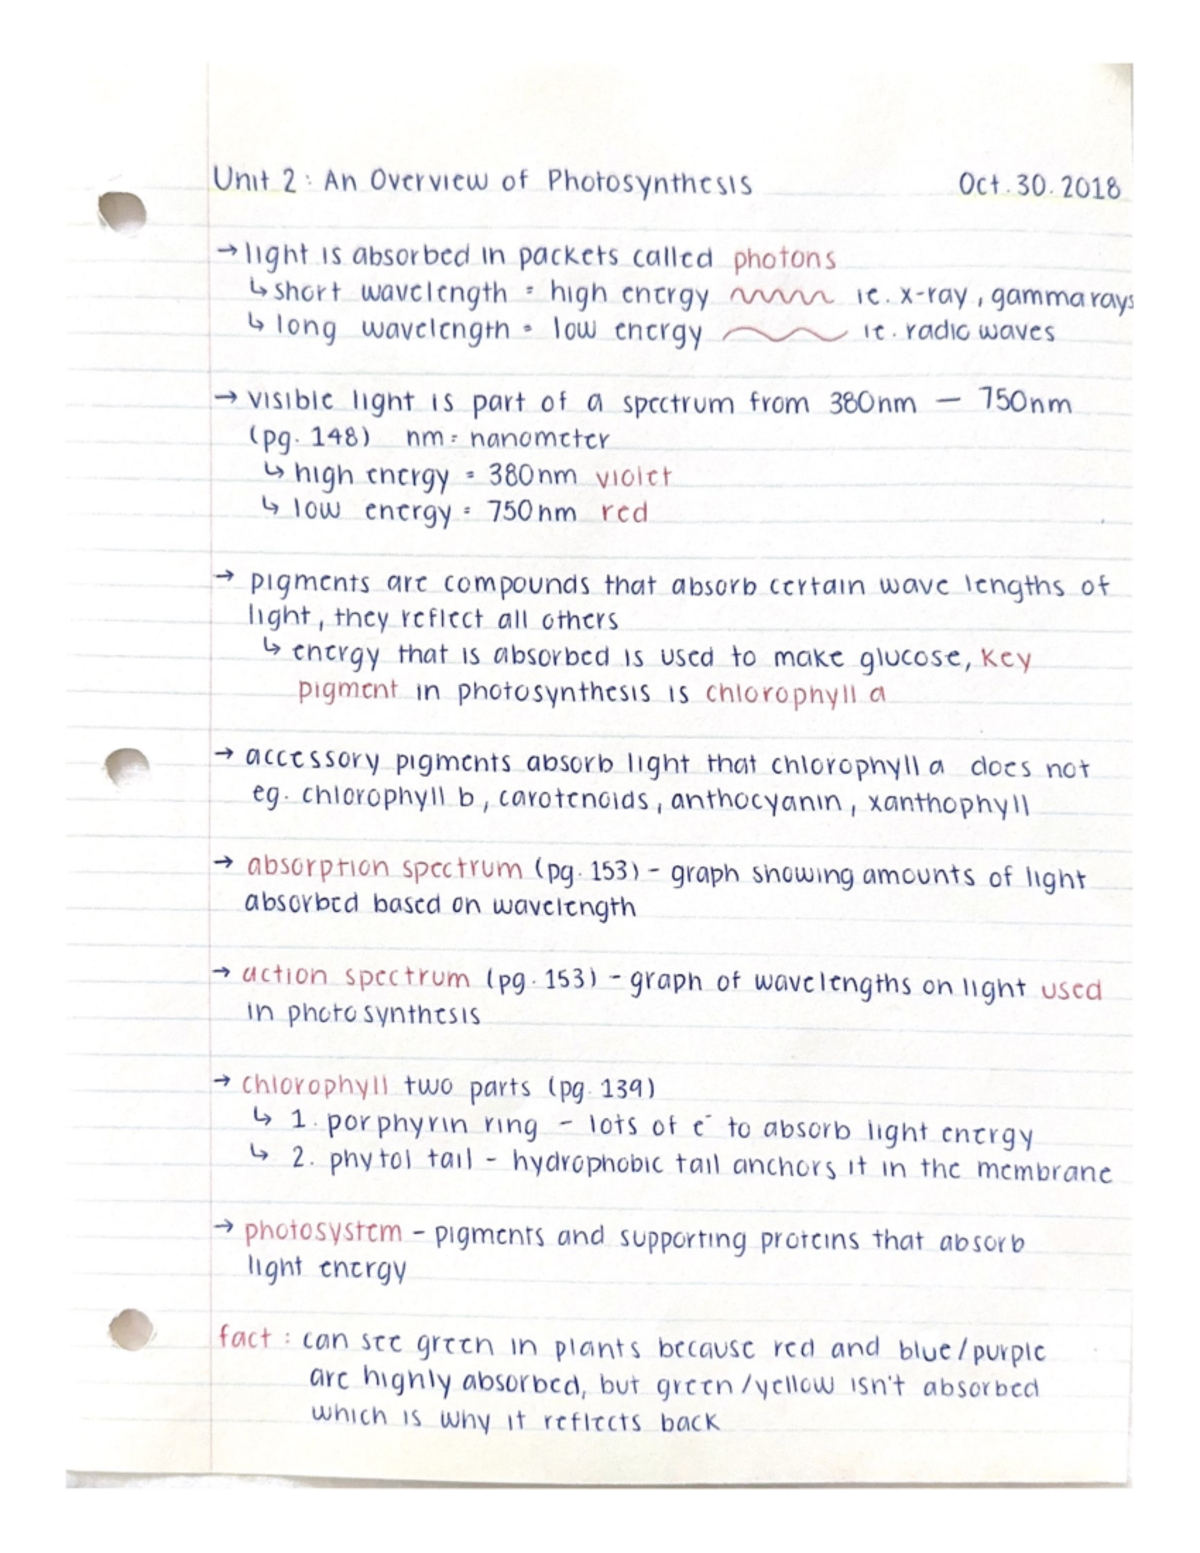 Unit 2: An Overview of Photosynthesis Oct. 30. 2018
→ light is absorbed in packets called photons
↳ short wavelength = high energy ie. x-ray, gamma rays
↳ long wavelength = low energy ie. radio waves
→ visible light is part of a spectrum from 380nm — 750nm
(pg. 148) nm = nanometer
↳ high energy = 380nm violet
↳ low energy = 750nm red
→ pigments are compounds that absorb certain wave lengths of
light, they reflect all others
↳ energy that is absorbed is used to make glucose, key
pigment in photosynthesis is chlorophyll a
→ accessory pigments absorb light that chlorophyll a does not
eg. chlorophyll b, carotenoids, anthocyanin, xanthophyll
→ absorption spectrum (pg. 153) - graph showing amounts of light
absorbed based on wavelength
→ action spectrum (pg. 153) - graph of wavelengths on light used
in photosynthesis
→ chlorophyll two parts (pg. 139)
↳ 1. porphyrin ring - lots of e⁻ to absorb light energy
↳ 2. phytol tail - hydrophobic tail anchors it in the membrane
→ photosystem - pigments and supporting proteins that absorb
light energy
fact: can see green in plants because red and blue/purple
are highly absorbed, but green/yellow isn't absorbed
which is why it reflects back